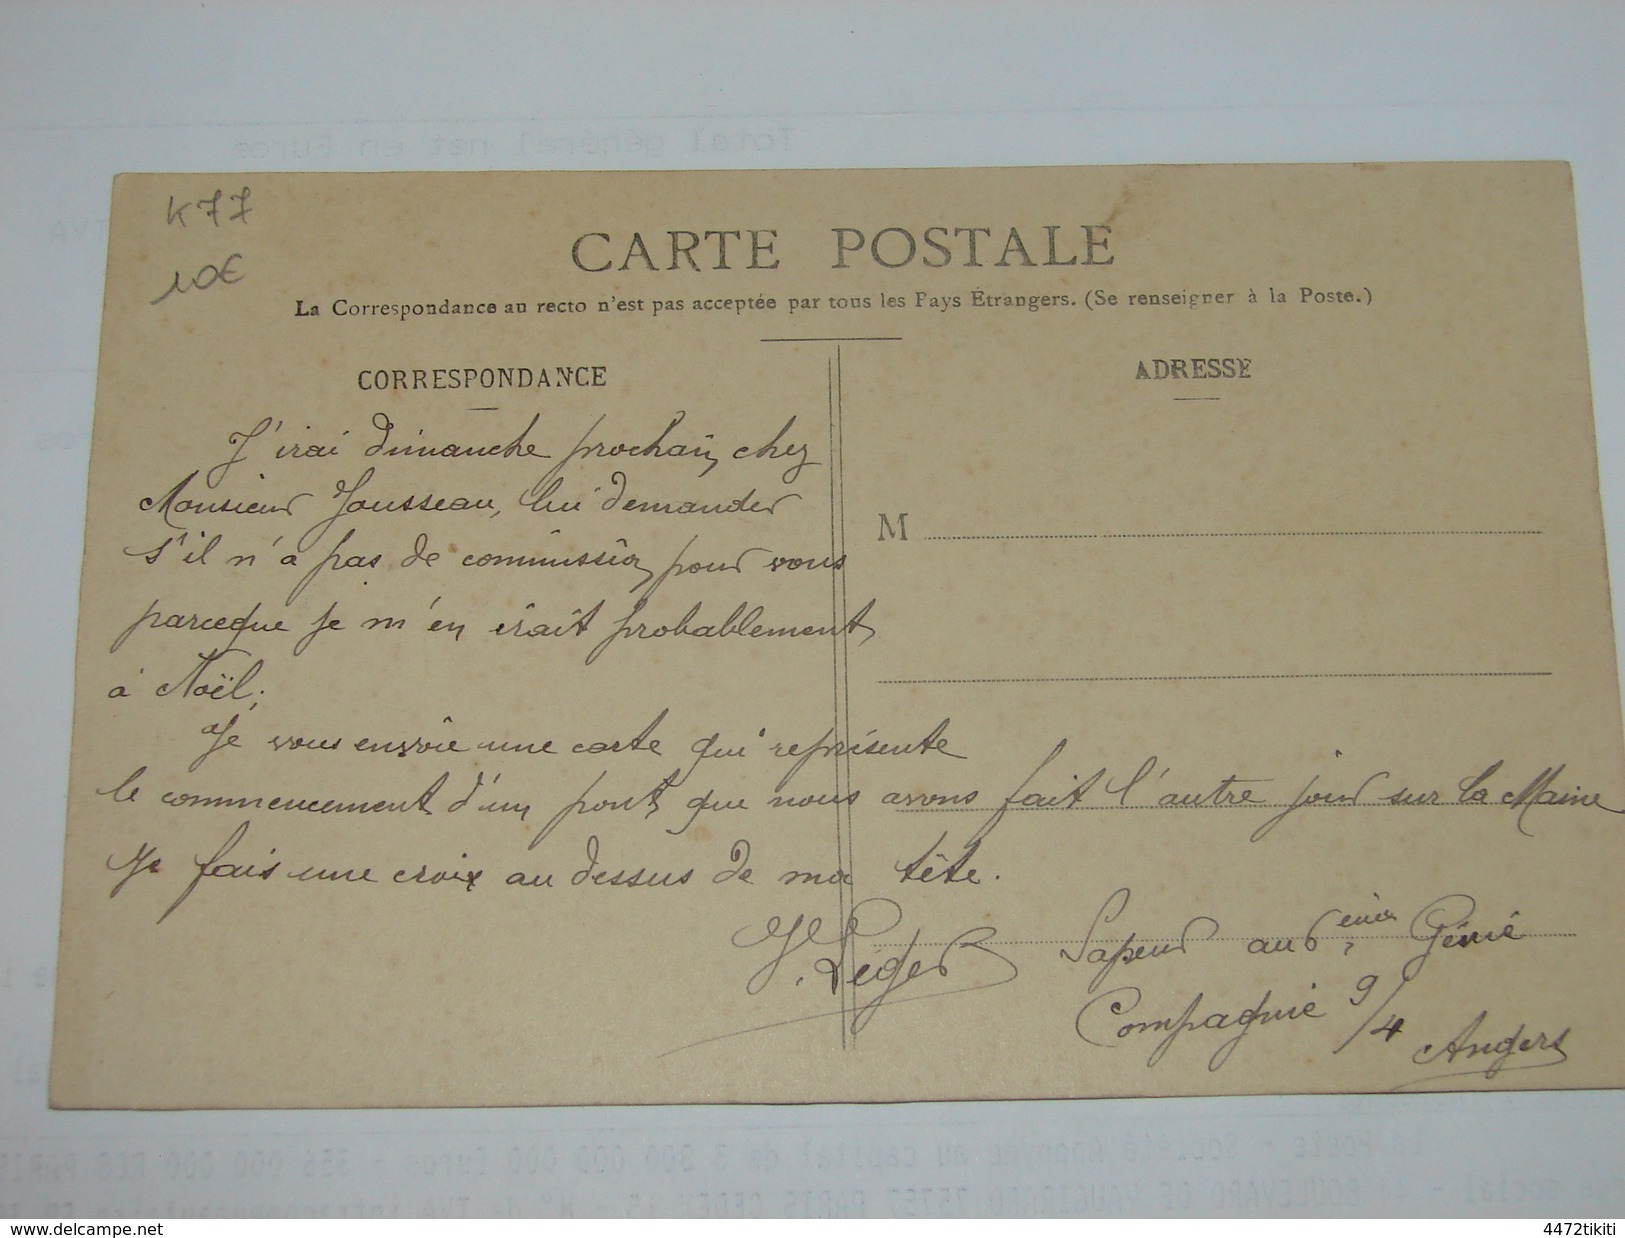 Total général net en Euros
TVA
K77
10€
CARTE POSTALE
La Correspondance au recto n'est pas acceptée par tous les Pays Étrangers. (Se renseigner à la Poste.)
CORRESPONDANCE
ADRESSE
M
J'irai dimanche prochain, chez
Monsieur Jousseau, lui demander
s'il n'a pas de commission pour vous
parceque je m'en irait probablement
à Noël;
Je vous envoie une carte qui représente
le commencement d'un pont que nous avons fait l'autre jour sur la Maine
Je fais une croix au dessus de ma tête.
J. Léger Sapeur au 6ème Génie
Compagnie 9/4 Angers
La Poste - Société Anonyme au capital de 3 800 000 000 Euros - 356 000 000 RCS PARIS
social - 44 BOULEVARD DE VAUGIRARD 75757 PARIS CEDEX 15 - N° de TVA intracommunautaire
delcampe.net
4472tikiti